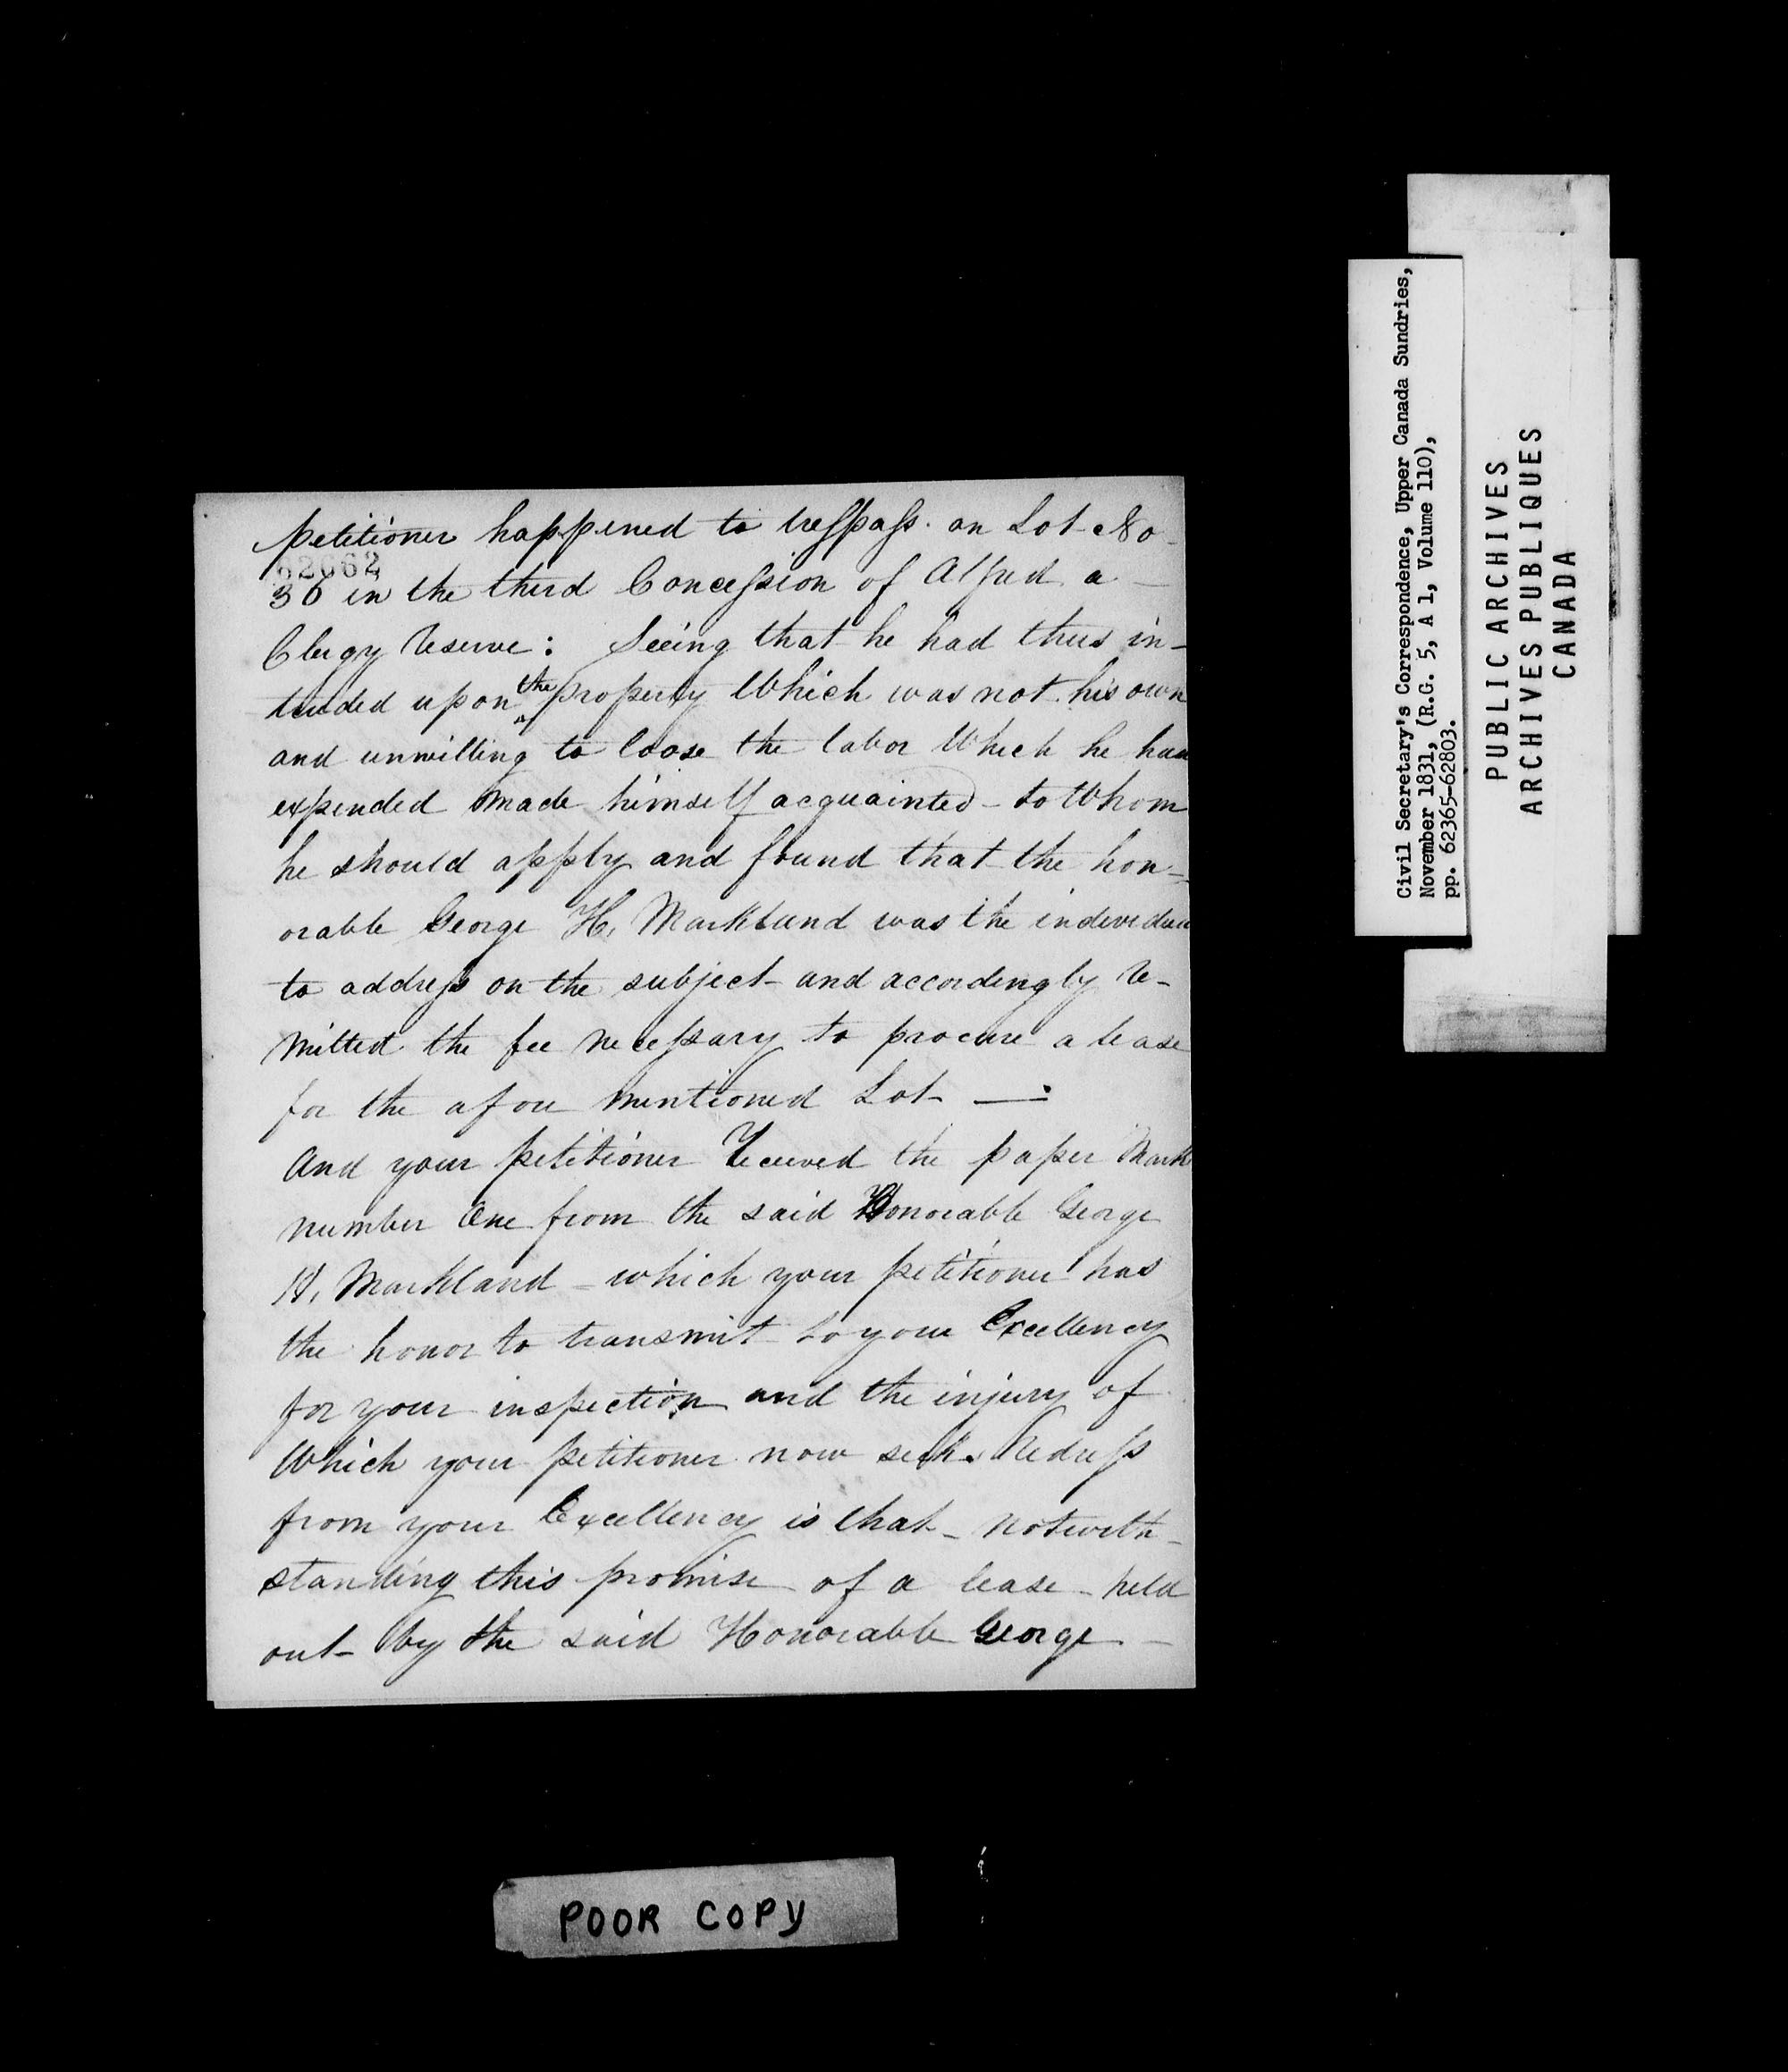 petitioner happened to trespass on Lot No
62662
30 in the third Concession of Alfred a
Clergy Reserve: Seeing that he had thus in-
truded upon the property Which was not his own
and unwilling to loose the labor Which he had
expended Made himself acquainted to Whom
he should apply and found that the hon-
orable George H. Markland was the individual
to address on the subject and accordingly re-
mitted the fee necessary to procure a lease
for the afore mentioned Lot —
And your petitioner Received the paper Mark
number One from the said Honorable George
H. Markland which your petitioner has
the honor to transmit to your Excellency
for your inspection and the injury of
Which your petitioner now seeks Redress
from your Excellency is that notwith-
standing this promise of a lease held
out by the said Honorable George
Civil Secretary's Correspondence, Upper Canada Sundries,
November 1831, (R.G. 5, A 1, Volume 110),
pp. 62365-62803.
PUBLIC ARCHIVES
ARCHIVES PUBLIQUES
CANADA
POOR COPY